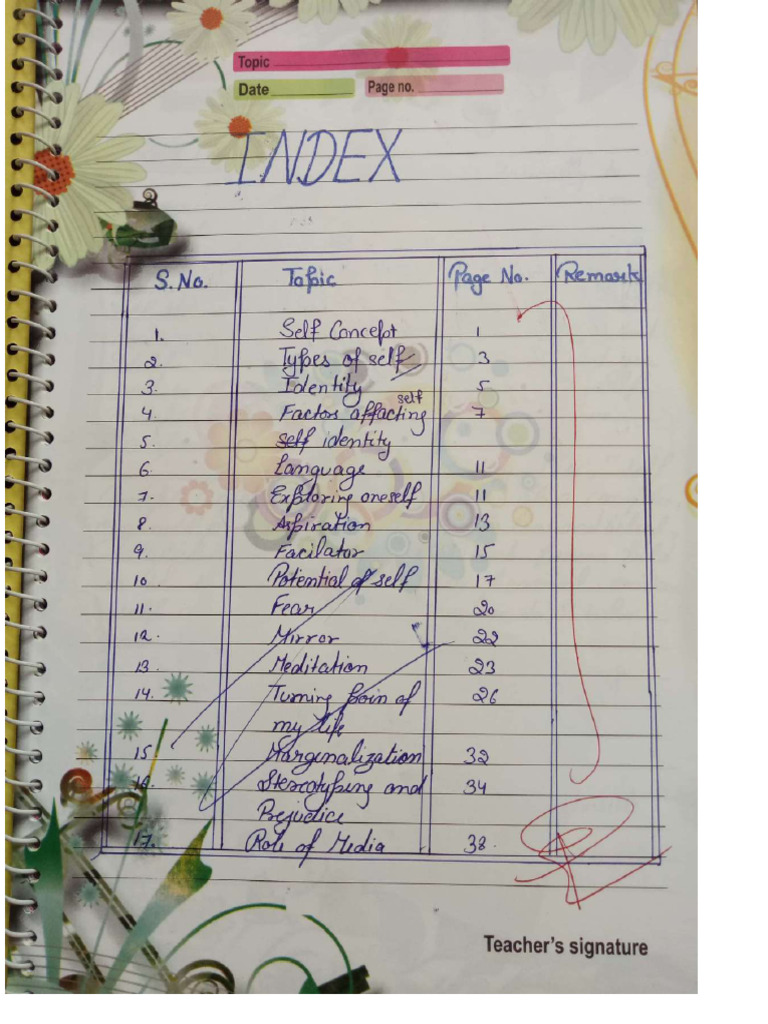 Topic
Date Page no.
INDEX
S.No. Topic Page No. Remark
1. Self Concept 1
2. Types of self 3
3. Identity 5
self
4. Factors affacting 7
5. self identity
6. Language 11
7. Exploring oneself 11
8. Aspiration 13
9. Facilator 15
10 Potential of self 17
11. Fear 20
12. Mirror 22
13. Meditation 23
14. Turning Poin of 26
my life
15. Marginalization 32
16. Stereotyping and 34
Prejudice
17. Role of Media 38
Teacher's signature